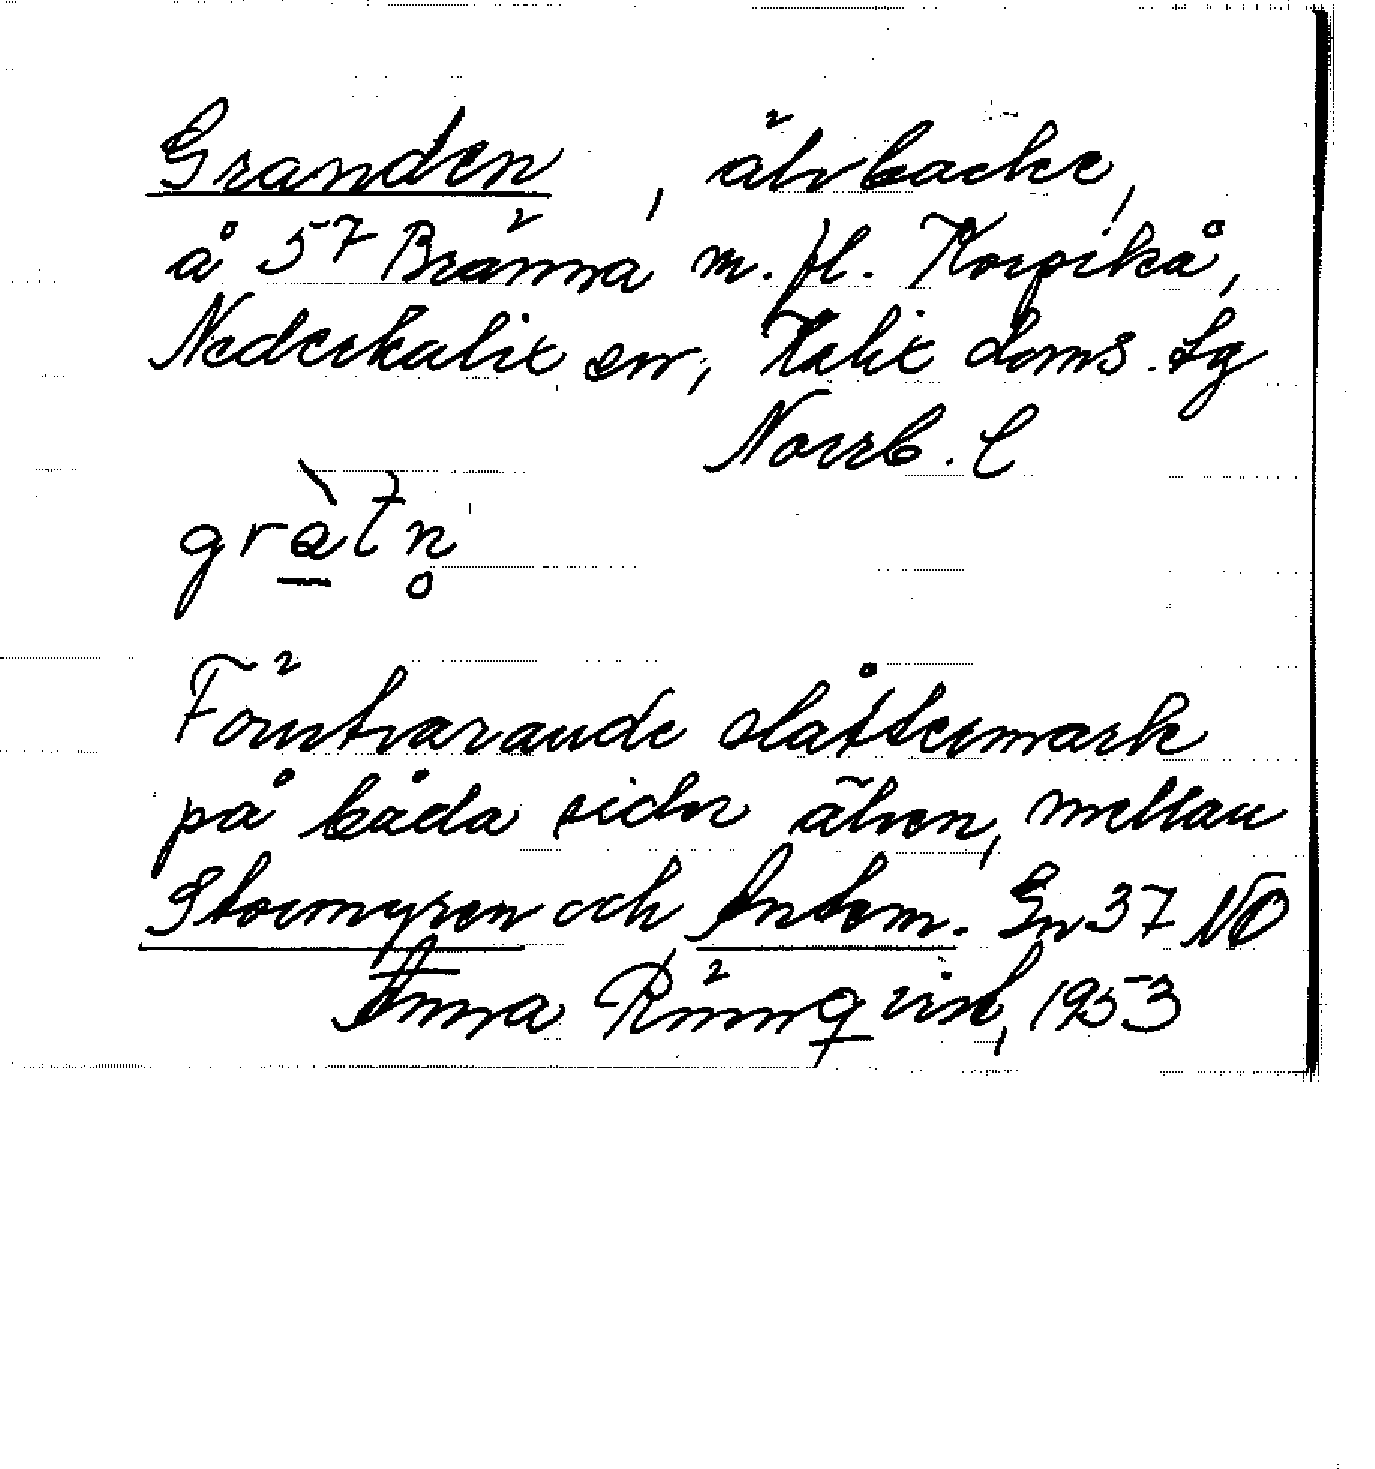 Granden, älvbacke,
å 57 Bränna m. fl. Korpikå,
Nederkalix sn, Kalix doms. lg
Norrb. l
gràtn̥
Förutvarande slåttermark
på båda sidor älven, mellan
Stormyren och Antem. Gn 37 NO
Anna Rönnqvist, 1953